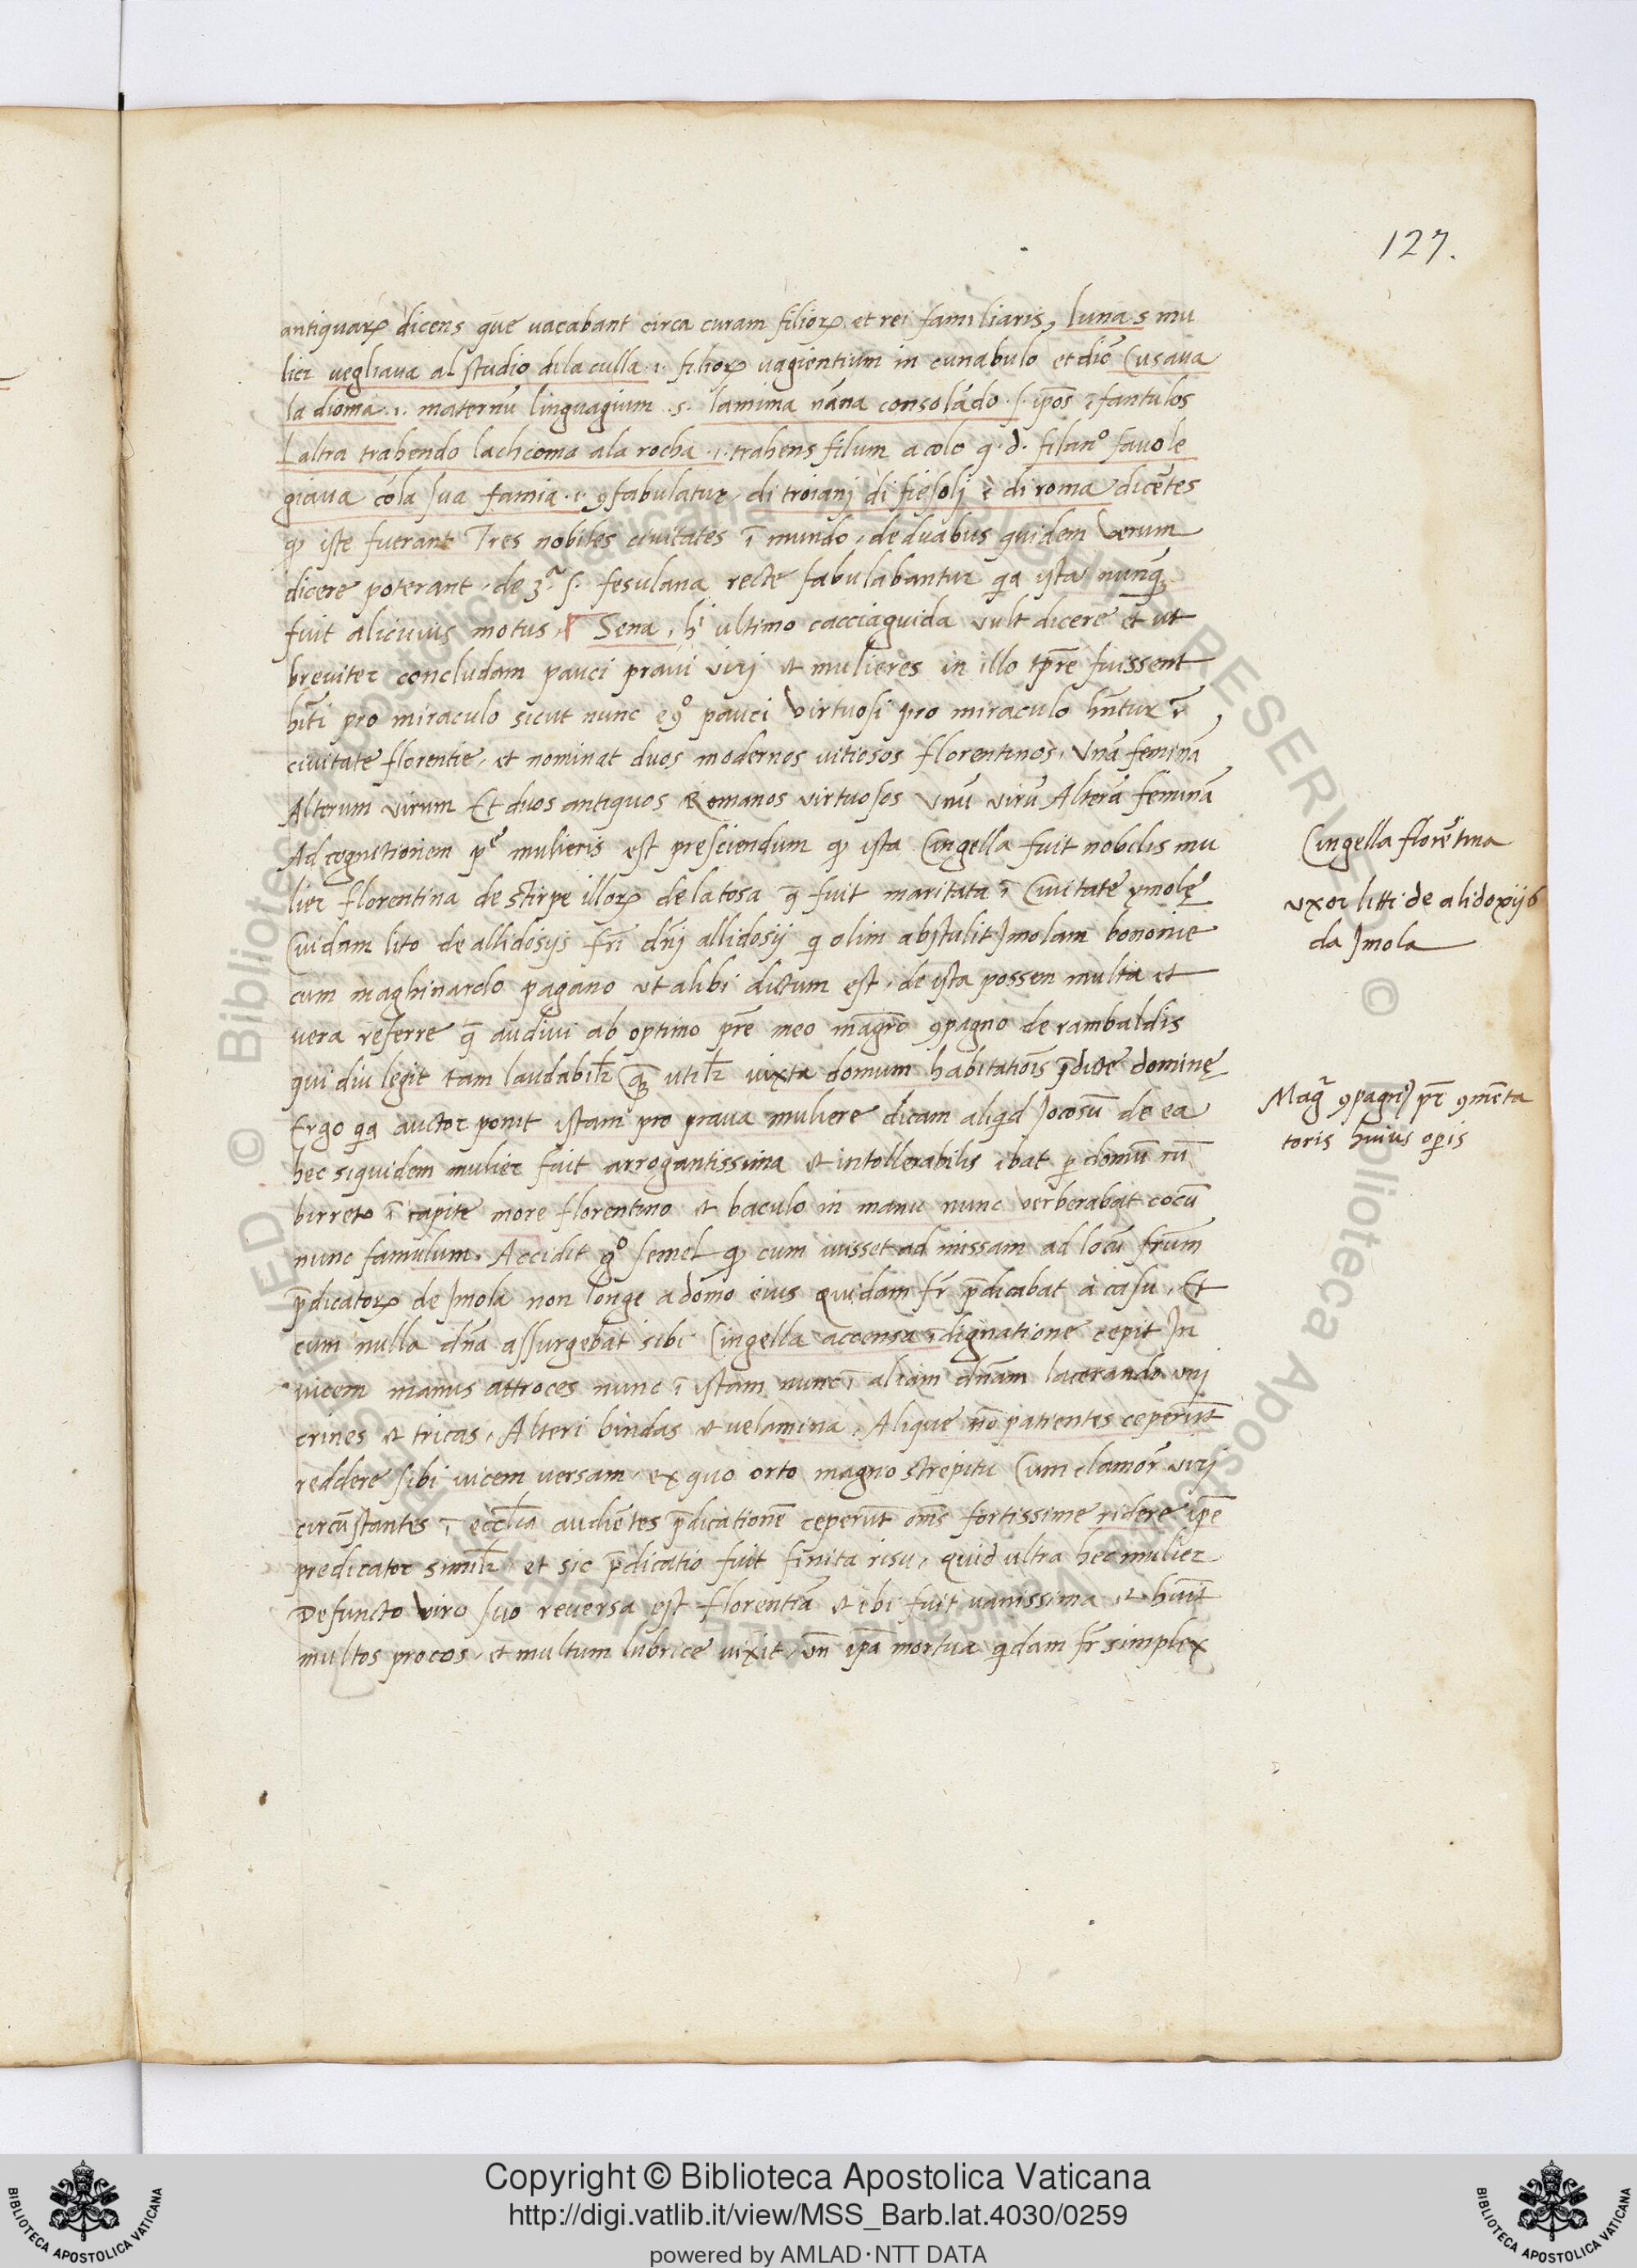 127.
antiquaꝝ dicens que vacabant circa curam filioꝝ et rei familiaris, luna s mu
lier vegliaua al studio dila culla .i. filioꝝ vagientium in cunabulo et dic̄ Cusaua
la dioma .i. maternū linguagium .s. lamima nāna consolādo .s. ip̄os īfantulos
Laltra trahendo lachioma ala rocha .i. trahens filum a colo q.d. filanᵒ fauole
giaua cōla sua famia .i. ꝯfabulatur, di troianj di fiesolj è di roma dicētes
ꝙ iste fuerant Tres nobiles ciuitates ī mundo, de duabus quidem verum
dicere poterant, de 3ᵃ s. fesulana recte fabulabantur qa ysta nunqꝫ
fuit alicuius motus, Sena, hⁱ ultimo cacciaguida vult dicere et ut
breuiter concludam pauci praui virj et mulieres in illo tp̄re fuissent
hīti pro miraculo sicut nunc eꝯᵒ pauci virtuosi pro miraculo hn̄tur ī
ciuitate florentie, et nominat duos modernos vitiosos florentinos, Vnā feminā
Alterum virum Et duos antiquos Romanos virtuosos Vnū virū Alterā feminā
Ad cognitionem pᵉ mulieris est presciendum ꝙ ista Cingella fuit nobilis mu
lier florentina de stirpe illoꝝ de la tosa q̄ fuit maritata ī Ciuitate ymolę
Cuidam lito de allidosijs fr̄i dn̄j allidosij q olim abstulit Jmolam bononie
cum maghinardo pagano vt alibi dictum est, de ista possem multa et
vera referre q̄ audiui ab optimo pr̄e meo magr̄o ꝯpagno de rambaldis
qui diu legit tam laudabilr̄ qꝫ utilr̄ iuxta domum habitatiōis p̄dicte dominę
Ergo qa auctor ponit istam pro praua muliere dicam aliqd Jocosū de ea
hec siquidem mulier fuit arrogantissima et intollerabilis ibat ꝑ domū cū
birreto ī capite more florentino et baculo in manu nunc verberabat cocū
nunc famulum. Accidit gᵒ semel ꝙ cum iuisset ad missam ad locū fr̄um
p̄dicatoꝝ de Jmola non longe a domo eius quidam fr̄ p̄dicabat à casu, Et
cum nulla dn̄a assurgebat sibi Cingella accensa īdignatione cepit In
uicem manus attroces nunc ī istam nunc ī aliam dn̄am lacerando vnj
crines et tricas, Alteri bindas et velamina, Alique nō patientes ceperūt
reddere sibi vicem versam, ex quo orto magno strepitu Cum clamor̄ virj
circūstantes ī eccl̄ia audiētes p̄dicationē ceperūt om̄s fortissime ridere ip̄e
predicator similr̄ et sic p̄dicatio fuit finita risu, quid ultra hec mulier
Defuncto viro suo reuersa est florentiā et ibi fuit vanissima et hūit
multos procos, et multum lubrice vixit, vn̄ ip̄a mortua qdam fr̄ simplex
Cingella florētina
vxor litti de alidoxijs
da Jmola
Magr̄ ꝯpagnꝰ pr̄ ꝯmēta
toris huius opis
Copyright © Biblioteca Apostolica Vaticana
http://digi.vatlib.it/view/MSS_Barb.lat.4030/0259
powered by AMLAD·NTT DATA
BIBLIOTECA APOSTOLICA VATICANA
BIBLIOTECA APOSTOLICA VATICANA